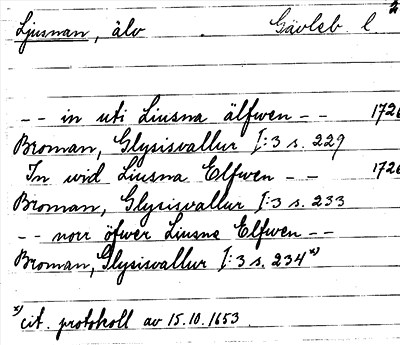 Ljusnan, älv Gävleb. l 2
-- in uti Liusna älfwen -- 1726
Broman, Glysisvallur I:3 s. 229
In wid Liusna Elfwen -- 1726
Broman, Glysisvallur I:3 s. 233
-- norr öfwer Liusne Elfwen --
Broman, Glysisvallur I:3 s. 234 x)
x) cit. protokoll av 15.10.1653